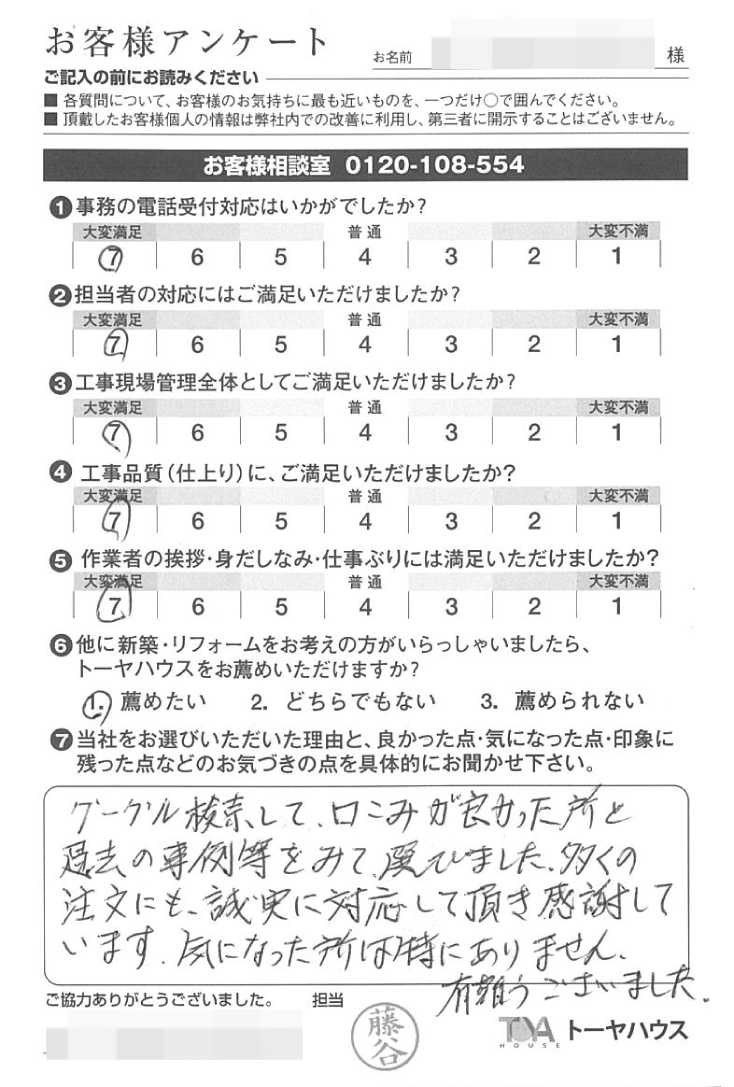 お客様アンケート
お名前 様
ご記入の前にお読みください
■ 各質問について、お客様のお気持ちに最も近いものを、一つだけ○で囲んでください。
■ 頂戴したお客様個人の情報は弊社内での改善に利用し、第三者に開示することはございません。
お客様相談室 0120-108-554
❶事務の電話受付対応はいかがでしたか?
大変満足 普通 大変不満
7 6 5 4 3 2 1
❷担当者の対応にはご満足いただけましたか?
大変満足 普通 大変不満
7 6 5 4 3 2 1
❸工事現場管理全体としてご満足いただけましたか?
大変満足 普通 大変不満
7 6 5 4 3 2 1
❹工事品質(仕上り)に、ご満足いただけましたか?
大変満足 普通 大変不満
7 6 5 4 3 2 1
❺作業者の挨拶・身だしなみ・仕事ぶりには満足いただけましたか?
大変満足 普通 大変不満
7 6 5 4 3 2 1
❻他に新築・リフォームをお考えの方がいらっしゃいましたら、
トーヤハウスをお薦めいただけますか?
1. 薦めたい 2. どちらでもない 3. 薦められない
❼当社をお選びいただいた理由と、良かった点・気になった点・印象に
残った点などのお気づきの点を具体的にお聞かせ下さい。
グーグル検索して、口こみが良かった所と
過去の事例等をみて、選びました。多くの
注文にも、誠実に対応して頂き感謝して
います。気になった所は特にありません。
有難うございました。
ご協力ありがとうございました。 担当
藤谷
TOYA HOUSE トーヤハウス